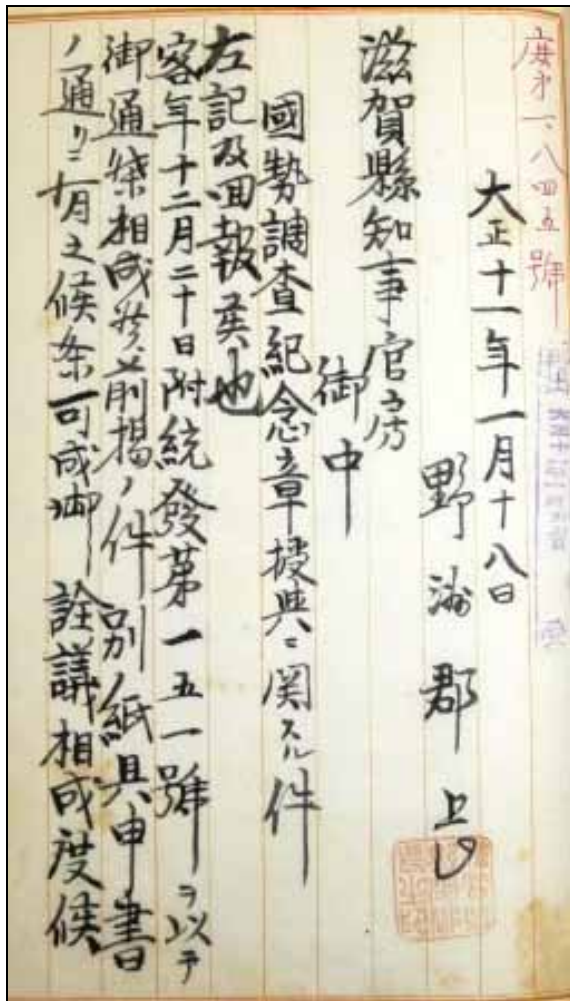 庶第一、八四五號
大正十一年一月十八日
野洲郡
滋賀縣知事官房
御中
國勢調査紀念章授與ニ関スル件
左記及回報候也
客年十二月二十日附統發第一五一號ヲ以テ
御通牒相成候前掲ノ件別ノ紙具申書
ノ通リニ有之候条可成御詮議相成度候